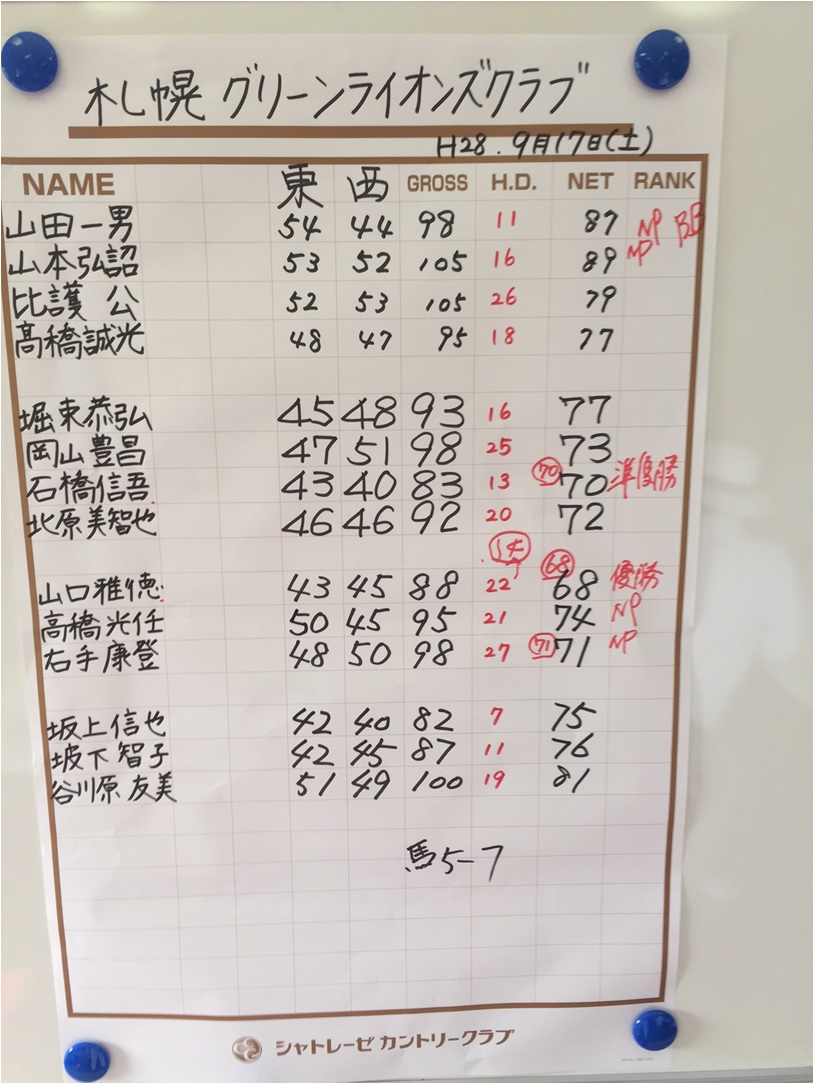 札幌 グリーンライオンズクラブ
H28. 9月17日(土)
NAME 東 西 GROSS H.D. NET RANK
山田一男 54 44 98 11 87 NP BB
山本弘詔 53 52 105 16 89 NP
比護 公 52 53 105 26 79
高橋誠光 48 47 95 18 77
堀東恭弘 45 48 93 16 77
岡山豊昌 47 51 98 25 73
石橋信吾 43 40 83 13 70 70 準優勝
北原美智也 46 46 92 20 72
14 68
山口雅徳 43 45 88 22 68 優勝
高橋光任 50 45 95 21 74 NP
右手康登 48 50 98 27 71 71 NP
坂上信也 42 40 82 7 75
坡下智子 42 45 87 11 76
谷川原友美 51 49 100 19 81
馬5-7
シャトレーゼ カントリークラブ